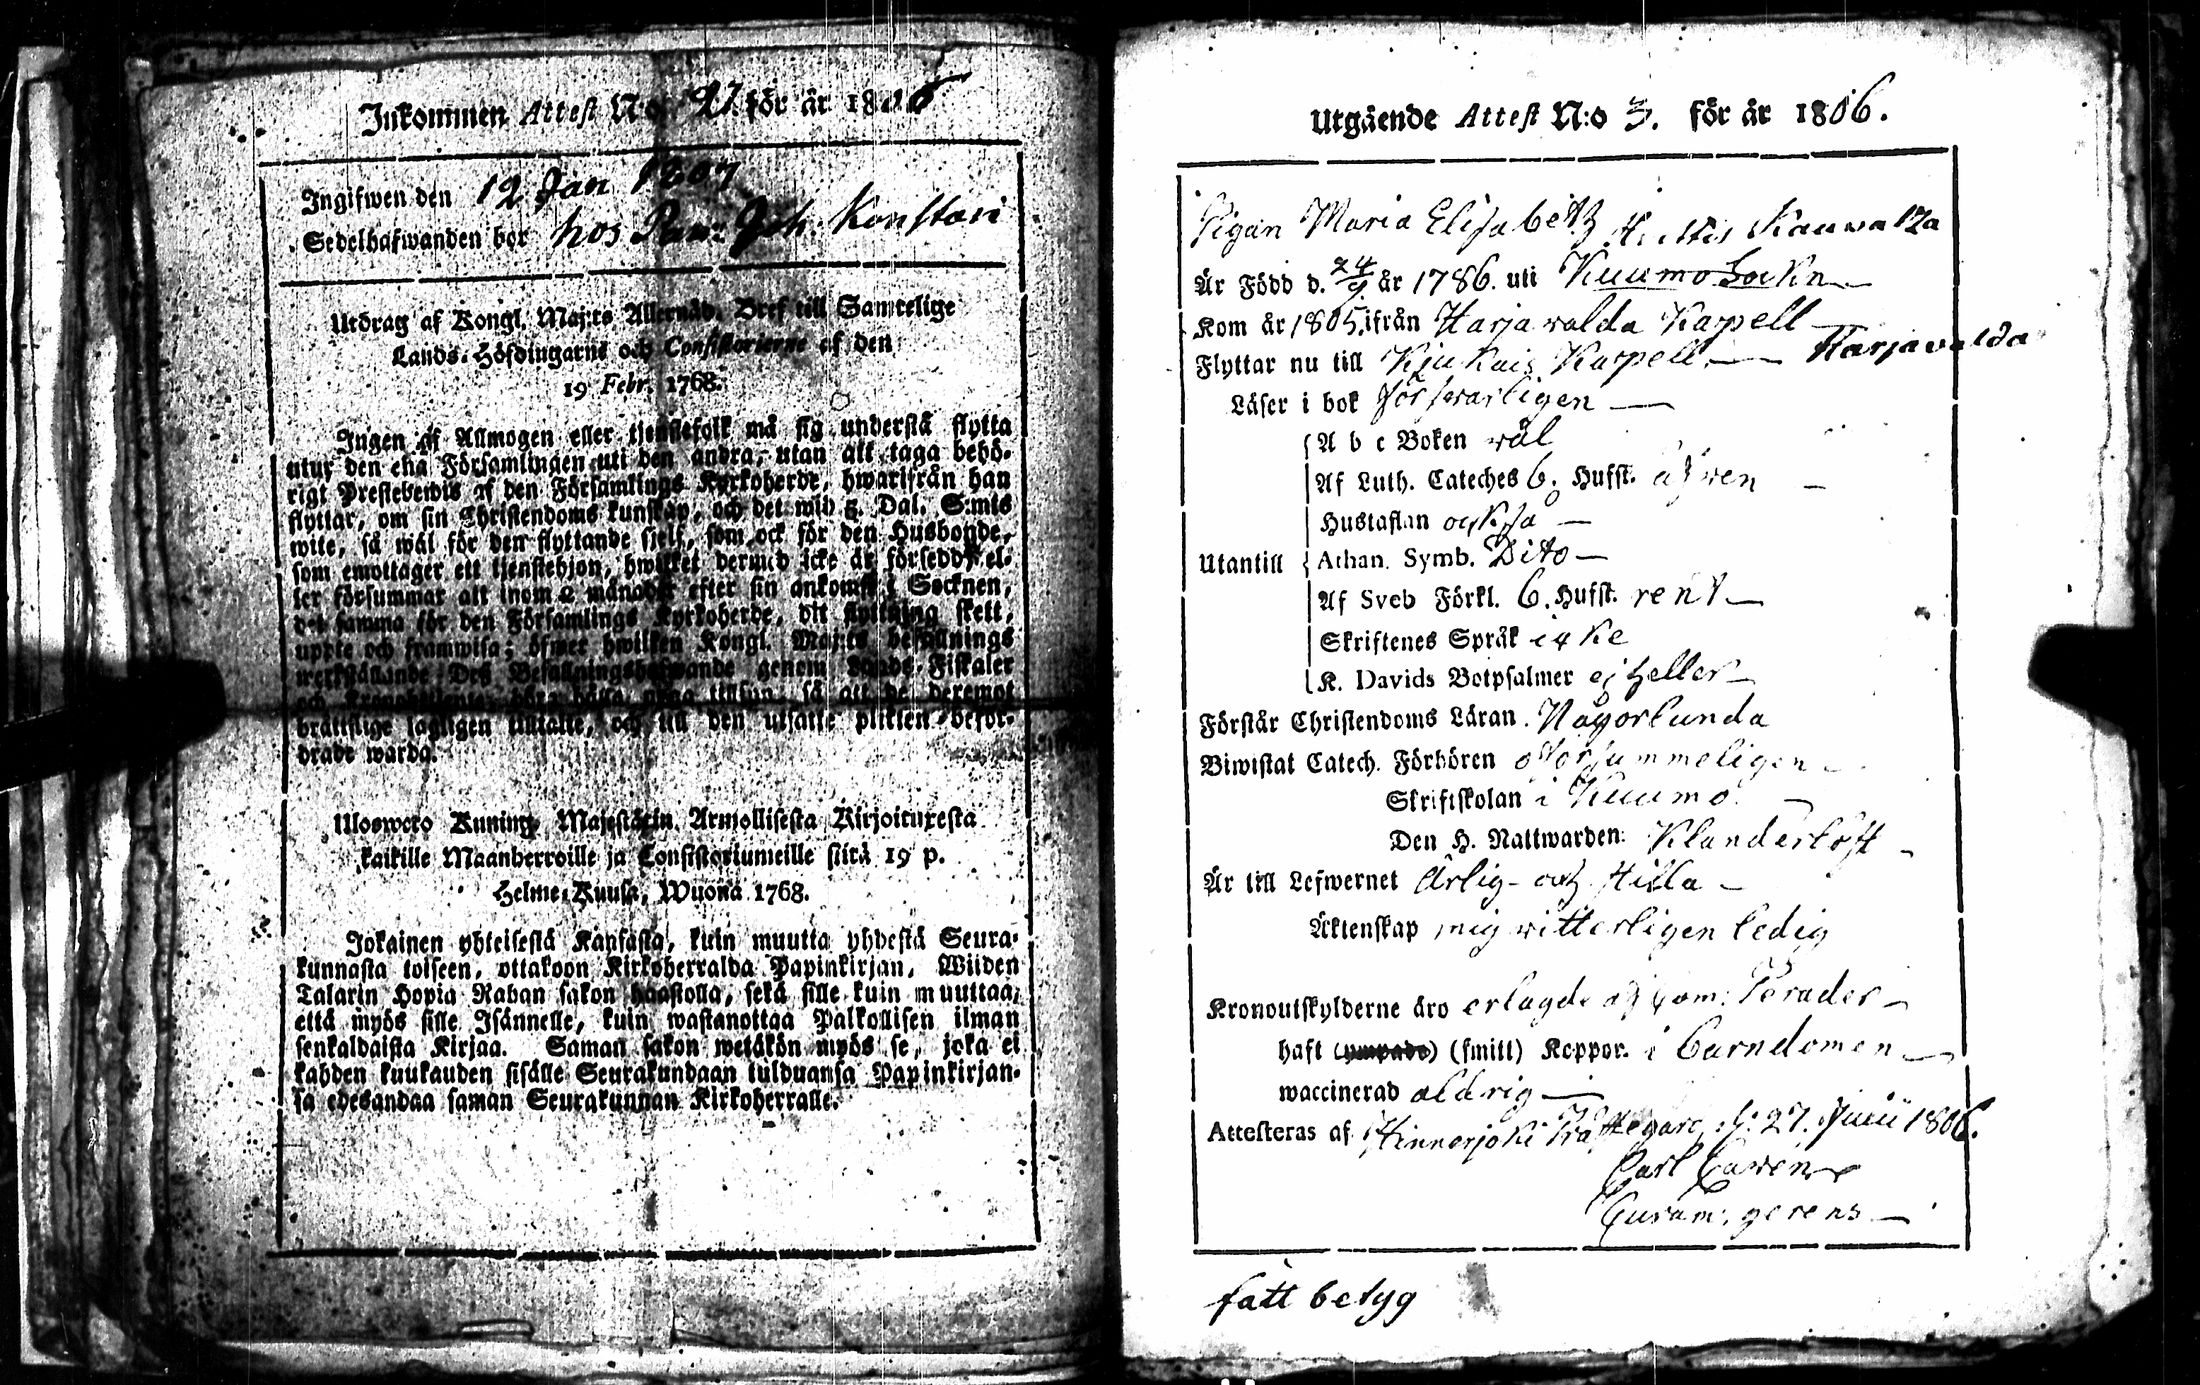 Inkommen Attest N:o 21. för år 1806
Ingifwen den 12 Jan 1807
Sedelhafwanden bor hos Joh. Konstari
Utdrag af Kongl. Maj:ts Allernåd. Bref till Samtelige
Lands-Höfdingarne och Consistorierne af den
19 Febr. 1768.
Ingen af Allmogen eller tjenstefolk må sig understå flytta
utur den ena Församlingen uti den andra, utan att taga behö-
rigt Prestebewis af den Församlings Kyrkoherde, hwarifrån han
flyttar, om sin Christendoms kunskap, och det wid 5. Dal. S:mts
wite, så wäl för den flyttande sjelf, som ock för den Husbonde,
som emottager ett tjenstehjon, hwilket dermed icke är försedd, el-
ler försummar att inom 2 månader efter sin ankomst i Socknen,
det samma för den Församlings Kyrkoherde, dit flyttning skett,
uppte och framwisa; öfwer hwilken Kongl. Maj:ts befallnings
werkställande Dess Befallningshafwande genom Lands-Fiskaler
och Kronobetjente, böra hålla noga tillsyn, så att de deremot
brättslige lagligen tilltalte, och till den utsatte plikten befor-
drade warda.
Ulosweto Kuning. Majestätin Armollisesta Kirjoituxesta
kaikille Maanherroille ja Consistoriumeille siitä 19 p.
Helme-Kuusa, Wuona 1768.
Jokainen yhteisestä Kansasta, kuin muutta yhdestä Seura-
kunnasta toiseen, ottakoon Kirkoherralda Papinkirjan, Wiiden
Talarin Hopia Rahan sakon haastolla, sekä sille kuin muuttaa,
että myös sille Isännelle, kuin wastanottaa Palkollisen ilman
senkaldaista Kirjaa. Saman sakon wetäkön myös se, joka ei
kahden kuukauden sisälle Seurakundaan tulduansa Papinkirjan-
sa edesandaa saman Seurakunnan Kirkoherralle.
Utgående Attest N:o 3. för år 1806.
Pigan Maria Elisabeth Kauwatza
Är Född d. 24/9 år 1786. uti Kuumo Sokn
Kom år 1805. ifrån Harjawalda Kapell
Flyttar nu till Kjukais Kapell Harjavalda
Läser i bok förswarligen
A b c Boken wäl
Af Luth. Cateches 6. Hufst. äfwen
Hustaflan också
Utantill Athan. Symb. Dito
Af Sveb Förkl. 6. Hufst. rent
Skriftenes Språk icke
K. Davids Botpsalmer ej heller
Förstår Christendoms Läran Någorlunda
Biwistat Catech. Förhören oförsummeligen
Skriftskolan i Kuumo
Den H. Nattwarden: Klanderlöst
Är till Lefwernet Ärlig och stilla
Äktenskap mig witterligen ledig
Kronoutskylderne äro erlagde af Com: Perader
haft (ympade) (smitt) Koppor. i Barndomen
waccinerad aldrig
Attesteras af Hinnerjoki Prästegård d: 27. Junii 1806.
Carl Cawen
Curam: gerens
fått betyg